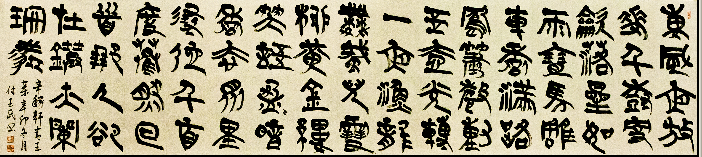 東風夜放
花千樹更
吹落星如
雨寶馬雕
車香滿路
鳳簫聲動
玉壺光轉
一夜魚龍
舞蛾兒雪
柳黃金縷
笑語盈暗
香去眾里
尋他千百
度驀然回
首那人卻
在燈火闌
珊處
辛稼軒青玉
案辛卯冬月